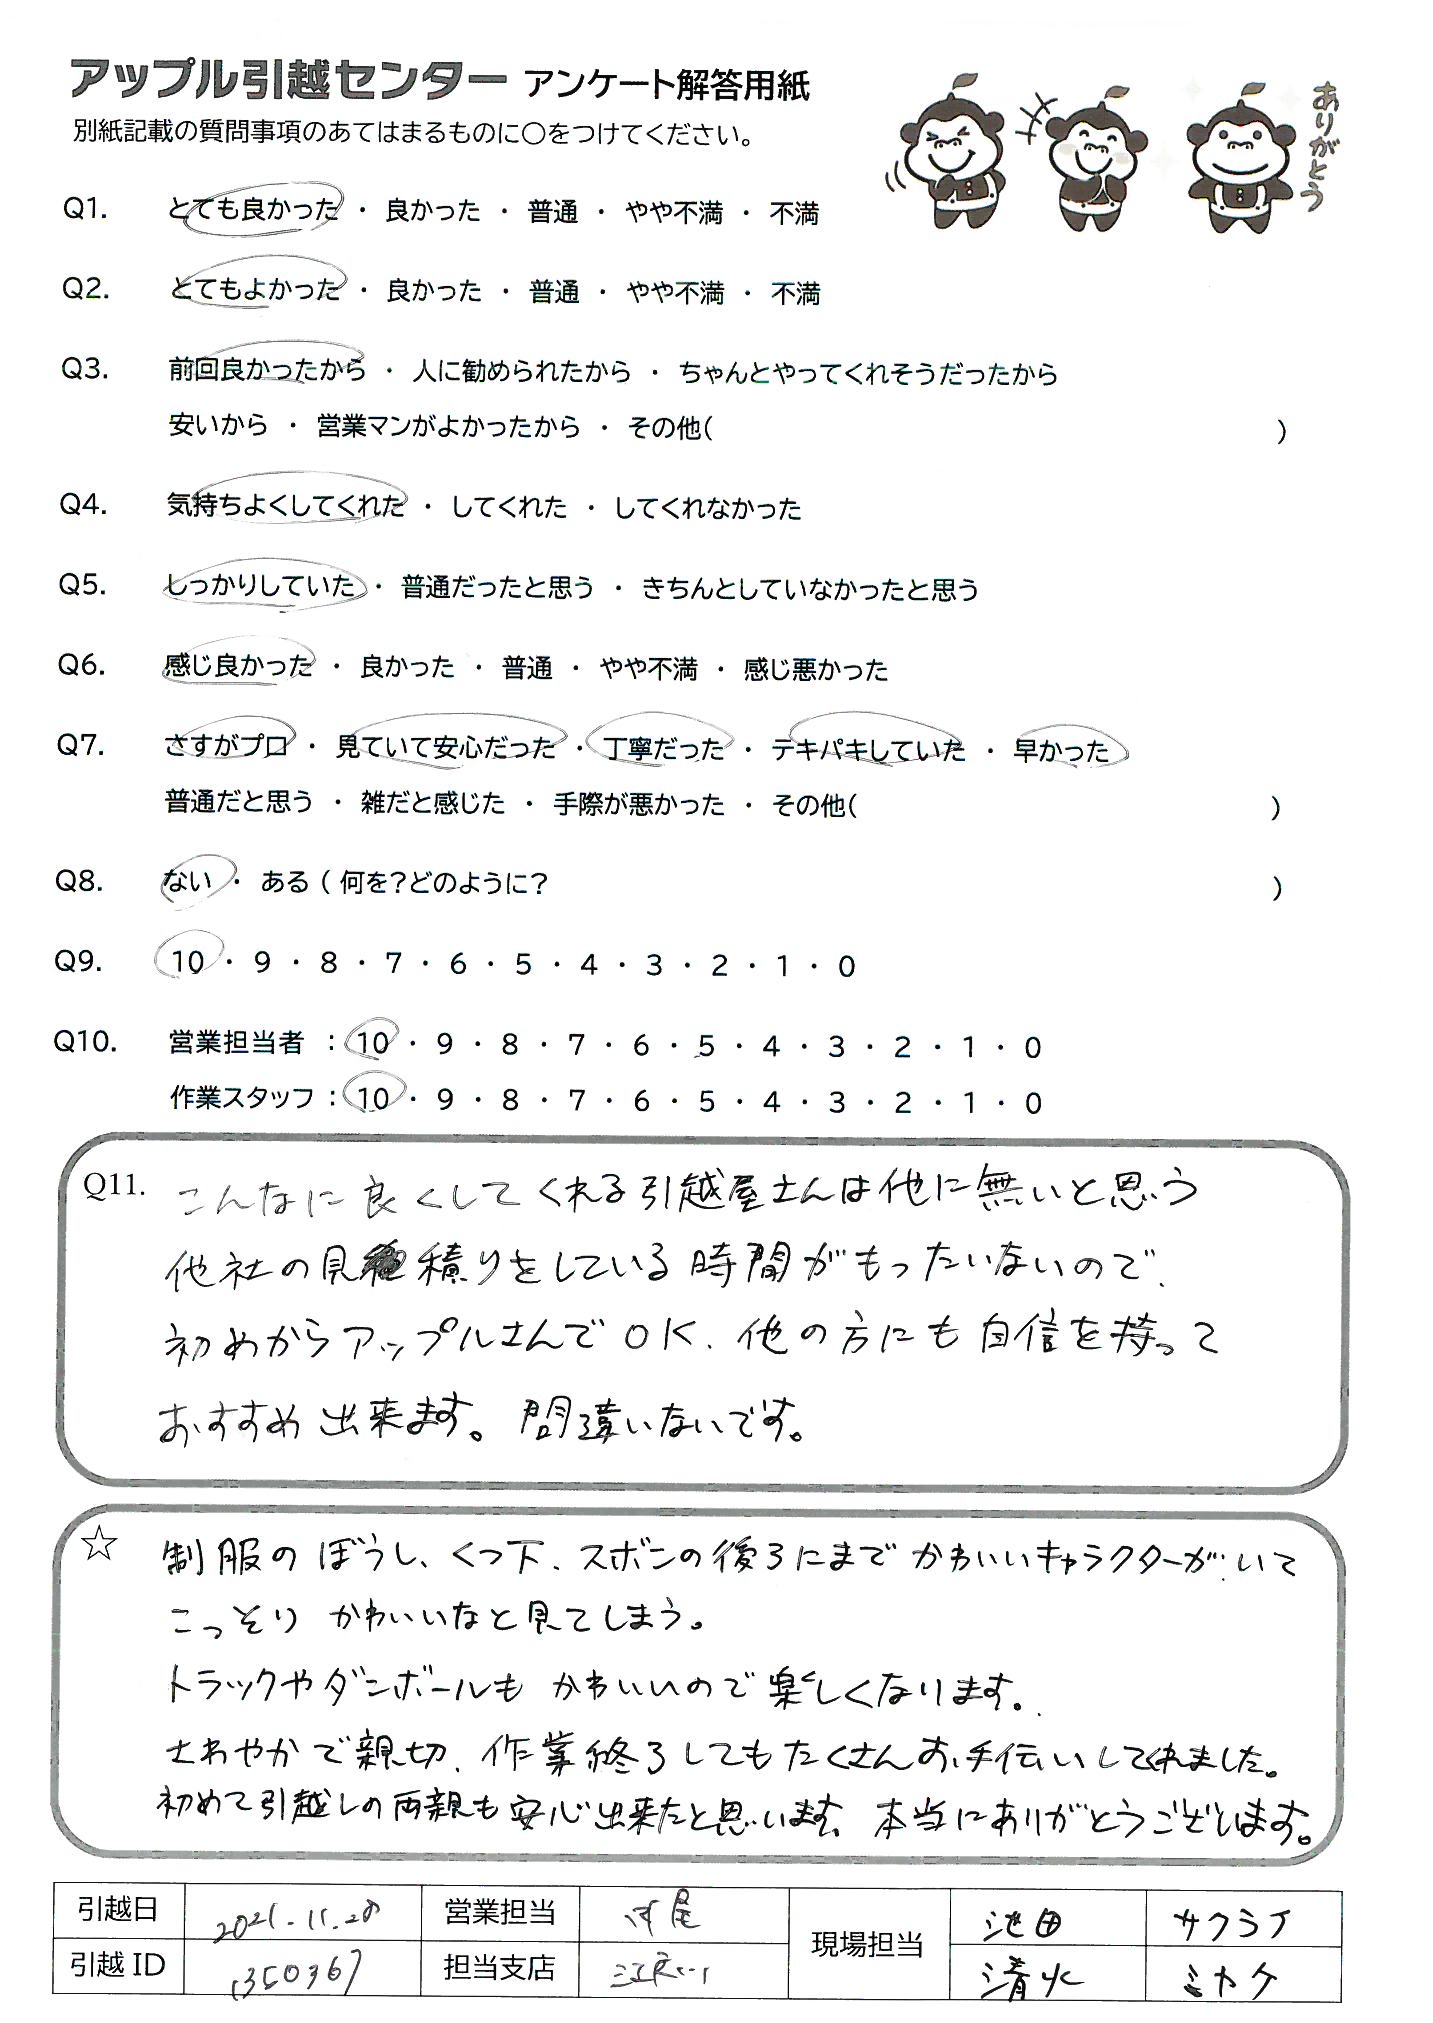 アップル引越センター アンケート解答用紙
ありがとう
別紙記載の質問事項のあてはまるものに○をつけてください。
Q1. とても良かった ・ 良かった ・ 普通 ・ やや不満 ・ 不満
Q2. とてもよかった ・ 良かった ・ 普通 ・ やや不満 ・ 不満
Q3. 前回良かったから ・ 人に勧められたから ・ ちゃんとやってくれそうだったから
安いから ・ 営業マンがよかったから ・ その他( )
Q4. 気持ちよくしてくれた ・ してくれた ・ してくれなかった
Q5. しっかりしていた ・ 普通だったと思う ・ きちんとしていなかったと思う
Q6. 感じ良かった ・ 良かった ・ 普通 ・ やや不満 ・ 感じ悪かった
Q7. さすがプロ ・ 見ていて安心だった ・ 丁寧だった ・ テキパキしていた ・ 早かった
普通だと思う ・ 雑だと感じた ・ 手際が悪かった ・ その他( )
Q8. ない ・ ある ( 何を?どのように? )
Q9. 10 ・ 9 ・ 8 ・ 7 ・ 6 ・ 5 ・ 4 ・ 3 ・ 2 ・ 1 ・ 0
Q10. 営業担当者 : 10 ・ 9 ・ 8 ・ 7 ・ 6 ・ 5 ・ 4 ・ 3 ・ 2 ・ 1 ・ 0
作業スタッフ : 10 ・ 9 ・ 8 ・ 7 ・ 6 ・ 5 ・ 4 ・ 3 ・ 2 ・ 1 ・ 0
Q11. こんなに良くしてくれる引越屋さんは他に無いと思う
他社の見積りをしている時間がもったいないので、
初めからアップルさんでOK、他の方にも自信を持って
おすすめ出来ます。間違いないです。
☆ 制服のぼうし、くつ下、スボンの後ろにまでかわいいキャラクターがいて
こっそり かわいいなと見てしまう。
トラックやダンボールも かわいいので楽しくなります。
さわやかで親切、作業終了してもたくさんお手伝いしてくれました。
初めて引越しの両親も安心出来たと思います、本当にありがとうございます。
引越日 2021.11.28 営業担当 尾 現場担当 池田 サクライ
引越 ID 1350367 担当支店 清水 ミヤケ